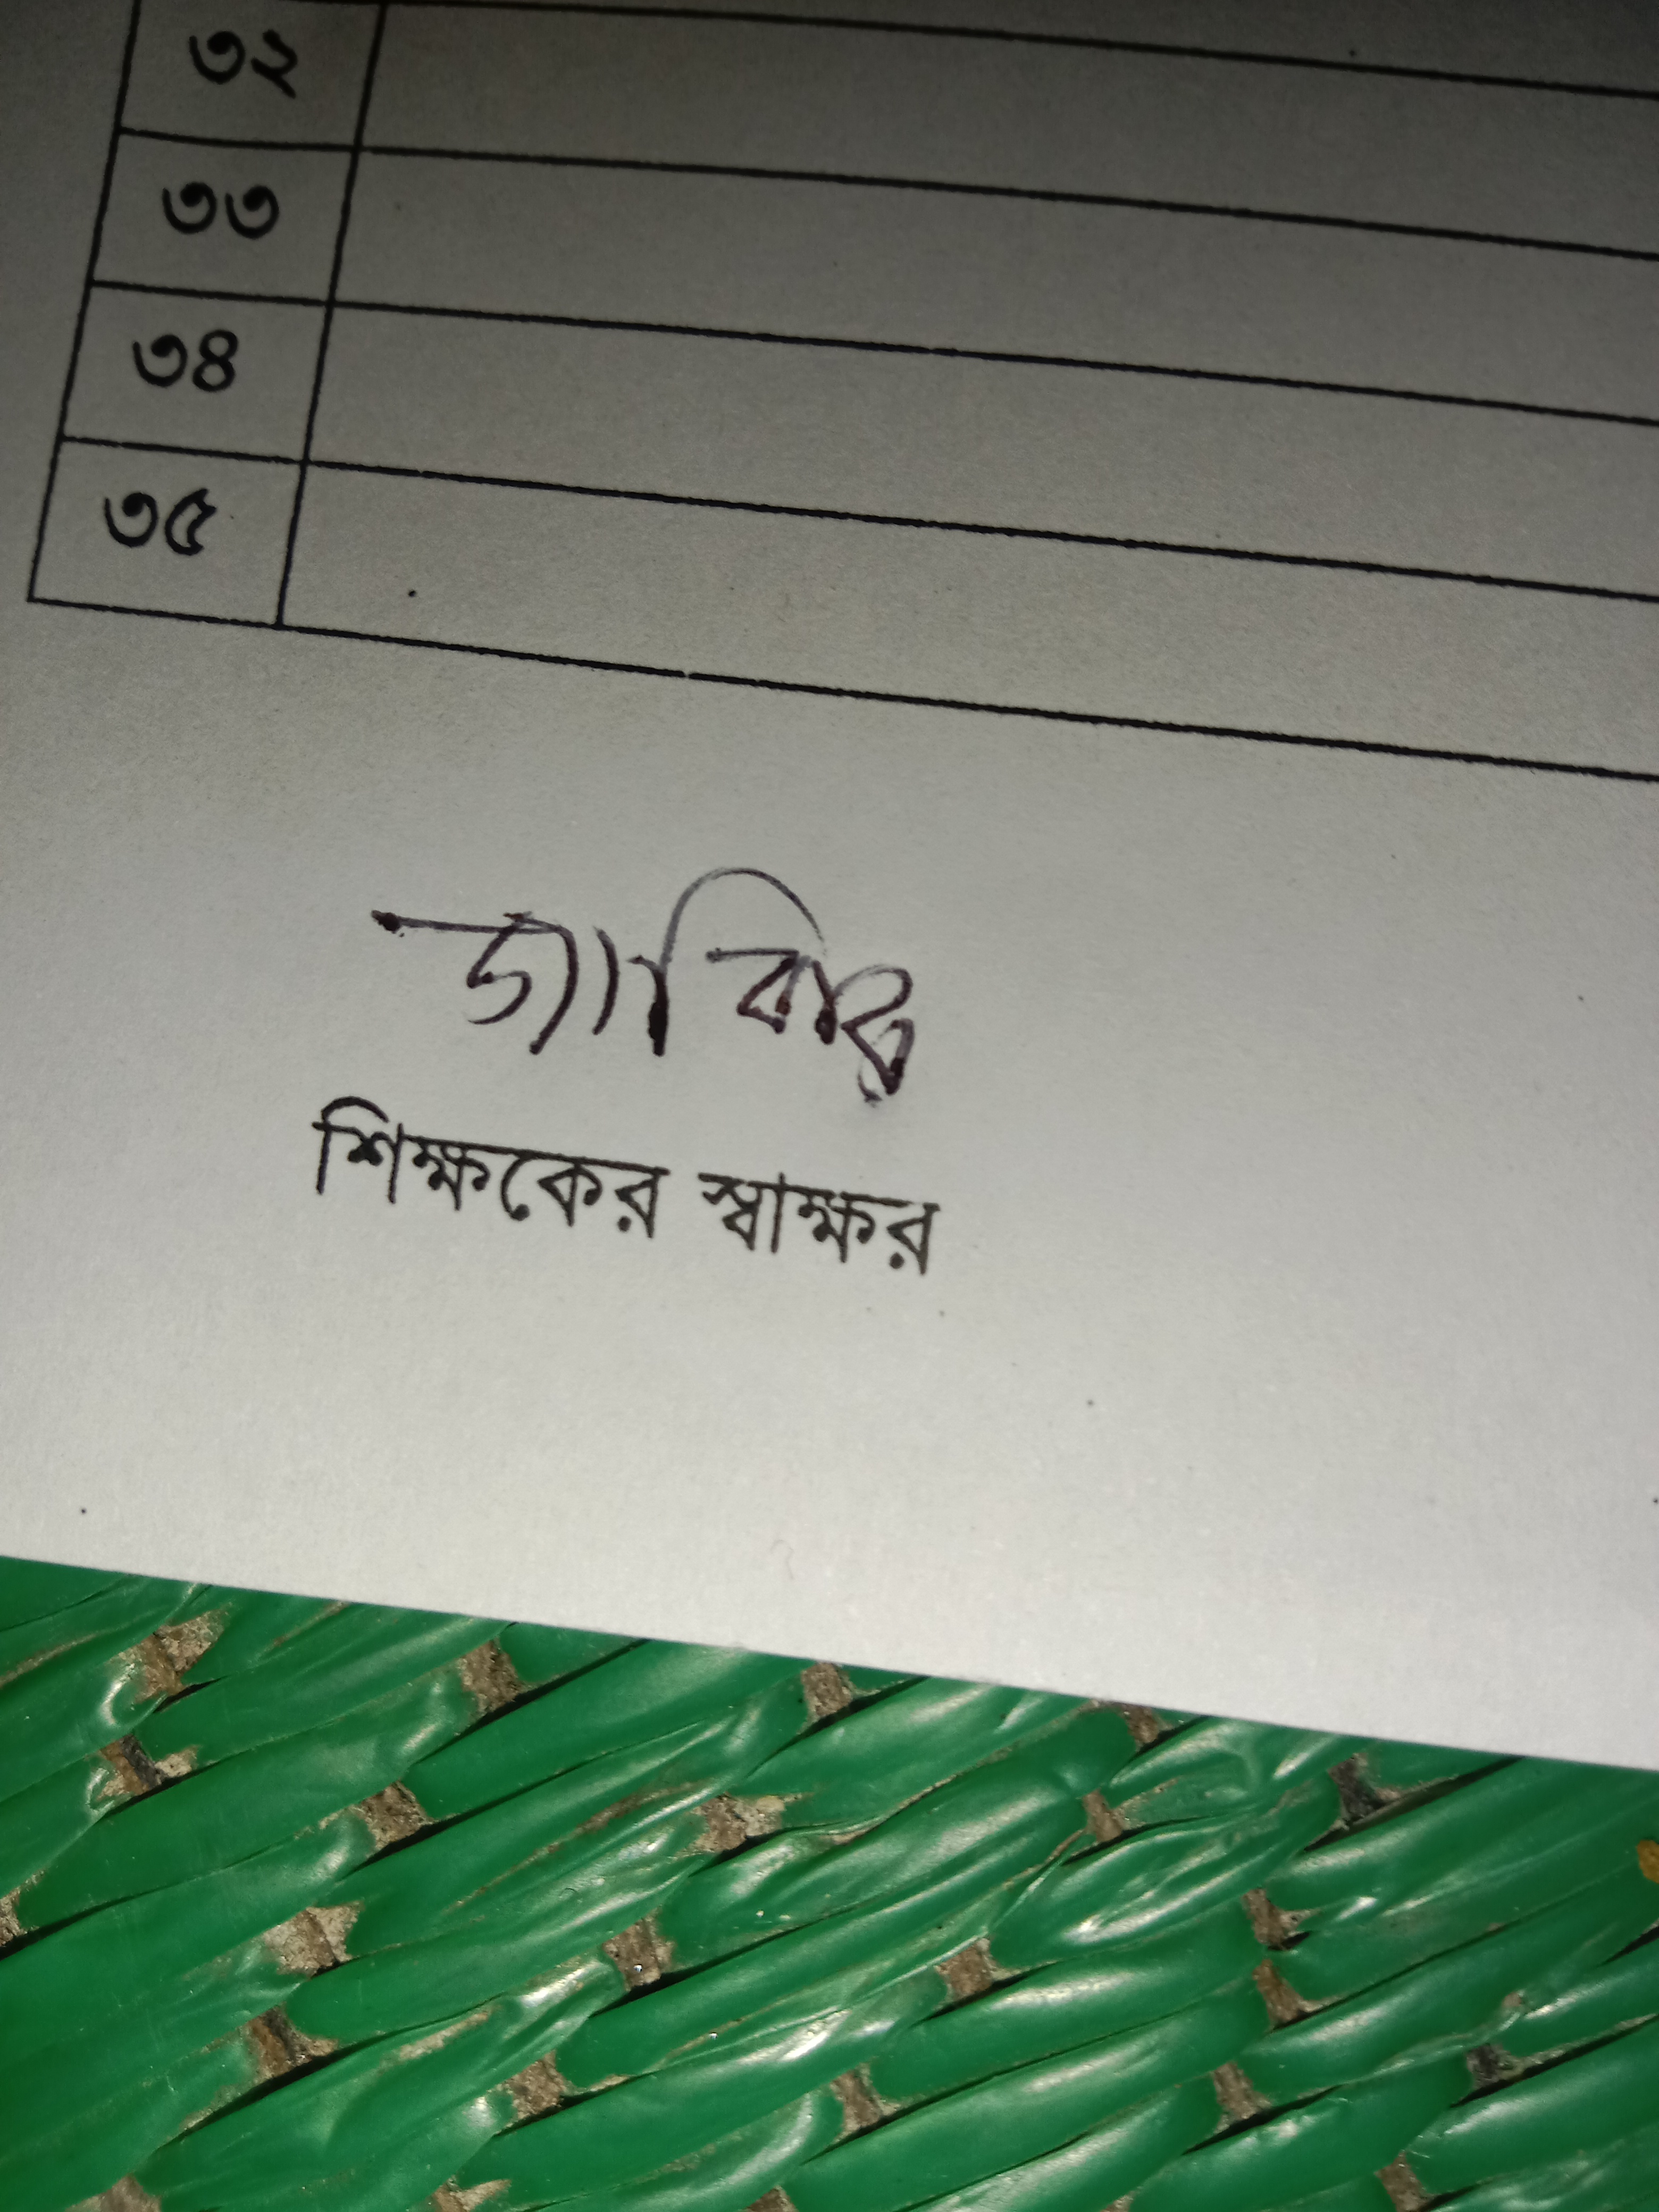 ৩২
৩৩
৩৪
৩৫
জাবির
শিক্ষকের স্বাক্ষর